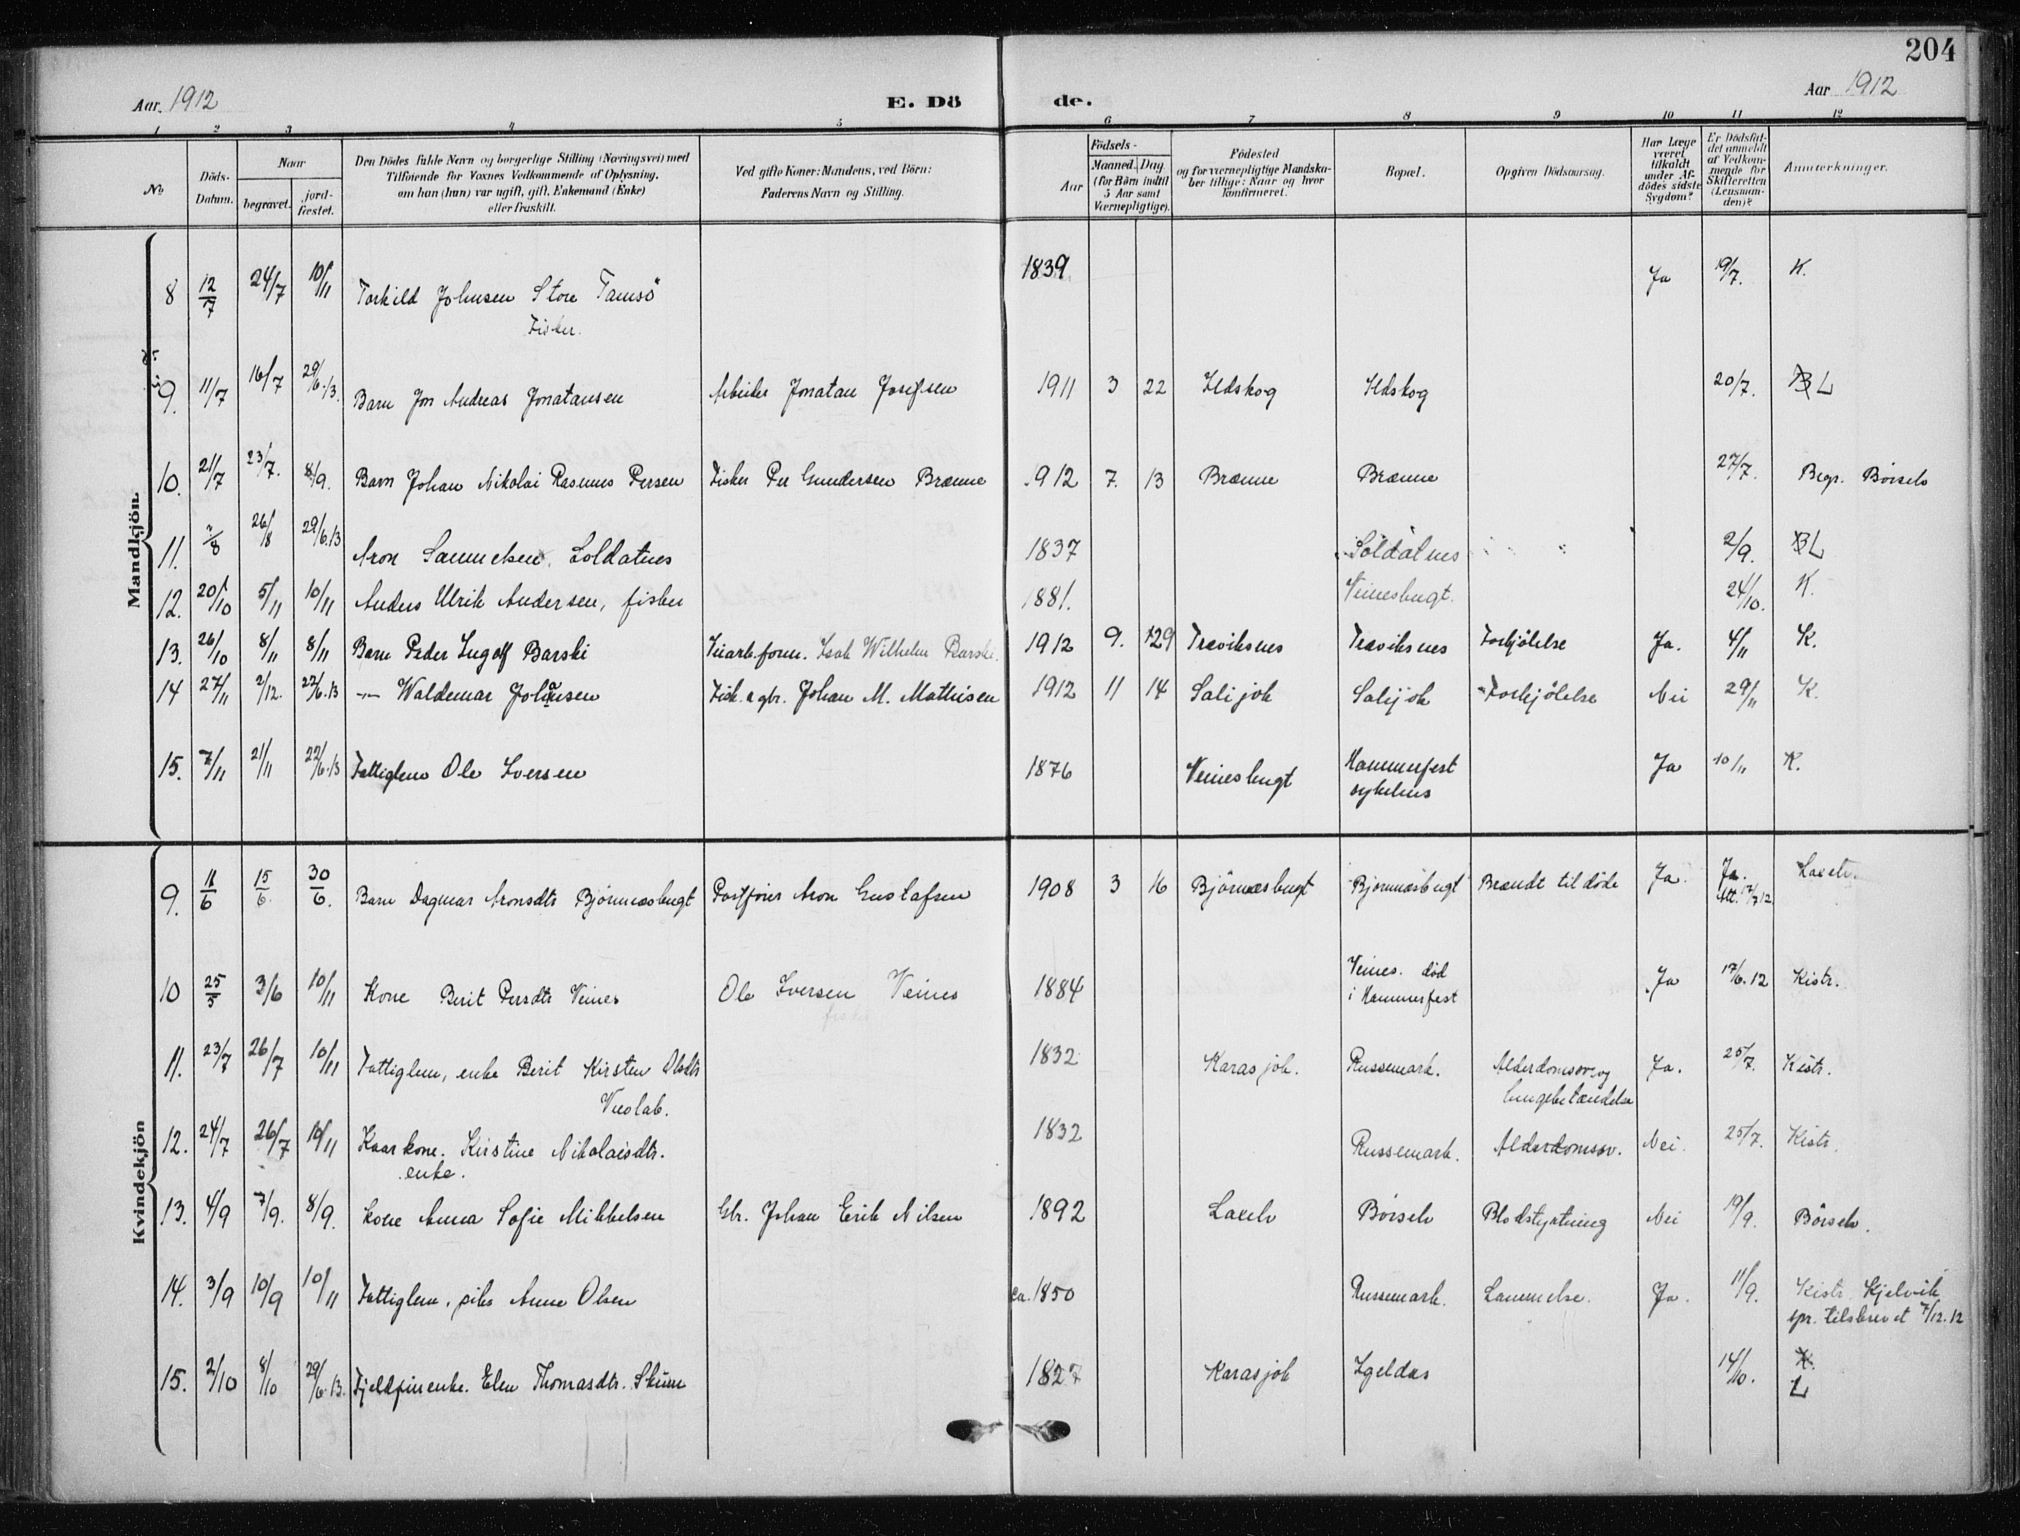 204
Aar 1912 E. Dö de. Aar 1912
1 2 3 4 5 6 7 8 9 10 11 12
No. Döds-Datum. Naar begravet. jord-fæstet. Den Dödes fulde Navn og borgerlige Stilling (Næringsvei) med Tilföiende for Voxnes Vedkommende af Oplysning, om han (hun) var ugift, gift, Enkemand (Enke) eller fraskilt. Ved gifte Koner: Mandens, ved Börn: Faderens Navn og Stilling. Födsels- Aar Maaned. Dag (for Börn indtil 5 Aar samt Værnepligtige). Födested og for værnepligtige Mandskaber tillige: Naar og hvor konfirmeret. Bopæl. Opgiven Dödsaarsag. Har Læge været tilkaldt under Afdödes sidste Sygdom? Er Dödsfaldet anmeldt af Vedkommende for Skifteretten (Lensmanden)? Anmærkninger.
Mandkjön.
8 12/7 24/7 10/11 Torkild Johnsen Store Tamsö 1839 Ja 19/7. K.
Fisker.
9. 11/7 16/7 29/6.13. Barn Jon Andreas Jonatansen Arbeider Jonatan Josefsen 1911 3 22 Ildskog Ildskog 20/7. L
10. 21/7 23/7. 8/9. Barn Johan Nikolai Rasmus Persen Fisker Per Gundersen Brænne 912 7. 13 Brænne Brænne 27/7. Begr. Börselv
11. 7/8 26/8 29/6.13 Aron Samuelsen, Soldatnes 1837 Soldatnes 2/9. L
12. 20/10 5/11 10/11 Anders Ulrik Andersen, fisker 1881. Veinesbugt. 24/10. K.
13. 26/10 8/11 8/11 Barn Peder Ingolf Barski Veiarb.form. Isak Wilhelm Barski. 1912 9. 29 Træviksnes Træviksnes Forkjölelse Ja. 4/11 K.
14 27/11 2/12. 22/6.13 — Waldemar Johansen Fisk. & gbr. Johan M. Mathisen 1912 11 14 Salijok Salijok Forkjölelse Nei 29/11 K.
15. 7/11 21/11 22/6.13 Fattiglem Ole Iversen 1876 Veinesbugt Hammerfest sykehus Ja 10/11 K.
Kvindekjön
9. 11/6 15/6. 30/6. Barn Dagmar Aronsdtr Björnæsbugt Postförer Aron Gustafsen 1908 3 16 Björnæsbugt Björnnæsbugt Brændt til döde Ja. Ja. Att. 17/7 12. Laxelv.
10 25/5 3/6 10/11 Kone Berit Persdtr Veines Ole Iversen Veines 1884 Veines. död i Hammerfest Ja 17/6.12 Kistr.
fisker
11. 23/7 26/7 10/11 Fattiglem, enke Berit Kirsten Olsdtr 1832 Karasjok. Russemark. Alderdomssv. og lungebetændelse Ja. 25/7. Kistr.
12. 24/7 26/7 10/11 Kaarkone. Kirstine Nikolaisdtr. enke. 1832 Russemark. Alderdomssv. Nei. 25/7. Kistr.
13. 4/9 7/9. 8/9. Kone Anna Sofie Mikkelsen Gbr. Johan Erik Nilsen 1892 Laxelv Börselv Blodstyrtning Nei 19/9. Börselv.
14. 3/9 10/9 10/11 Fattiglem, pike Anne Olsen ca. 1850 Russemark. Lammelse. Ja. 11/9. Kistr. Kjelvik spr. tilskrevet 7/12.12
15. 2/10 8/10 29/6.13. Fjeldfinenke. Elen Thomasdtr. Skum 1827 Karasjok Igeldas 14/10. K. L